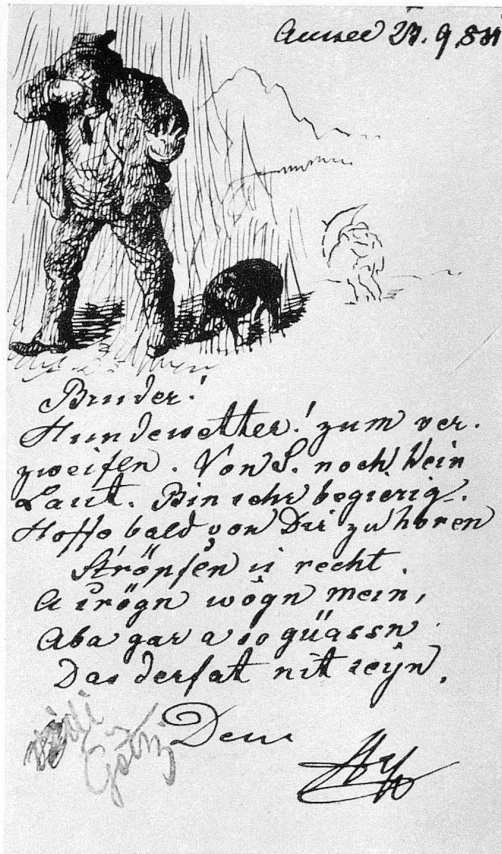 27. 9.
Bruder!
Hundewetter! zum ver.
zweifen. Von S. noch kein
Laut. Bin sehr begierig.
Hoffe bald von Dir zu hören
Ströpfen is recht.
A irögn wögn mein,
Aba gar a so güassn
Das derfat nit seyn.
Dein